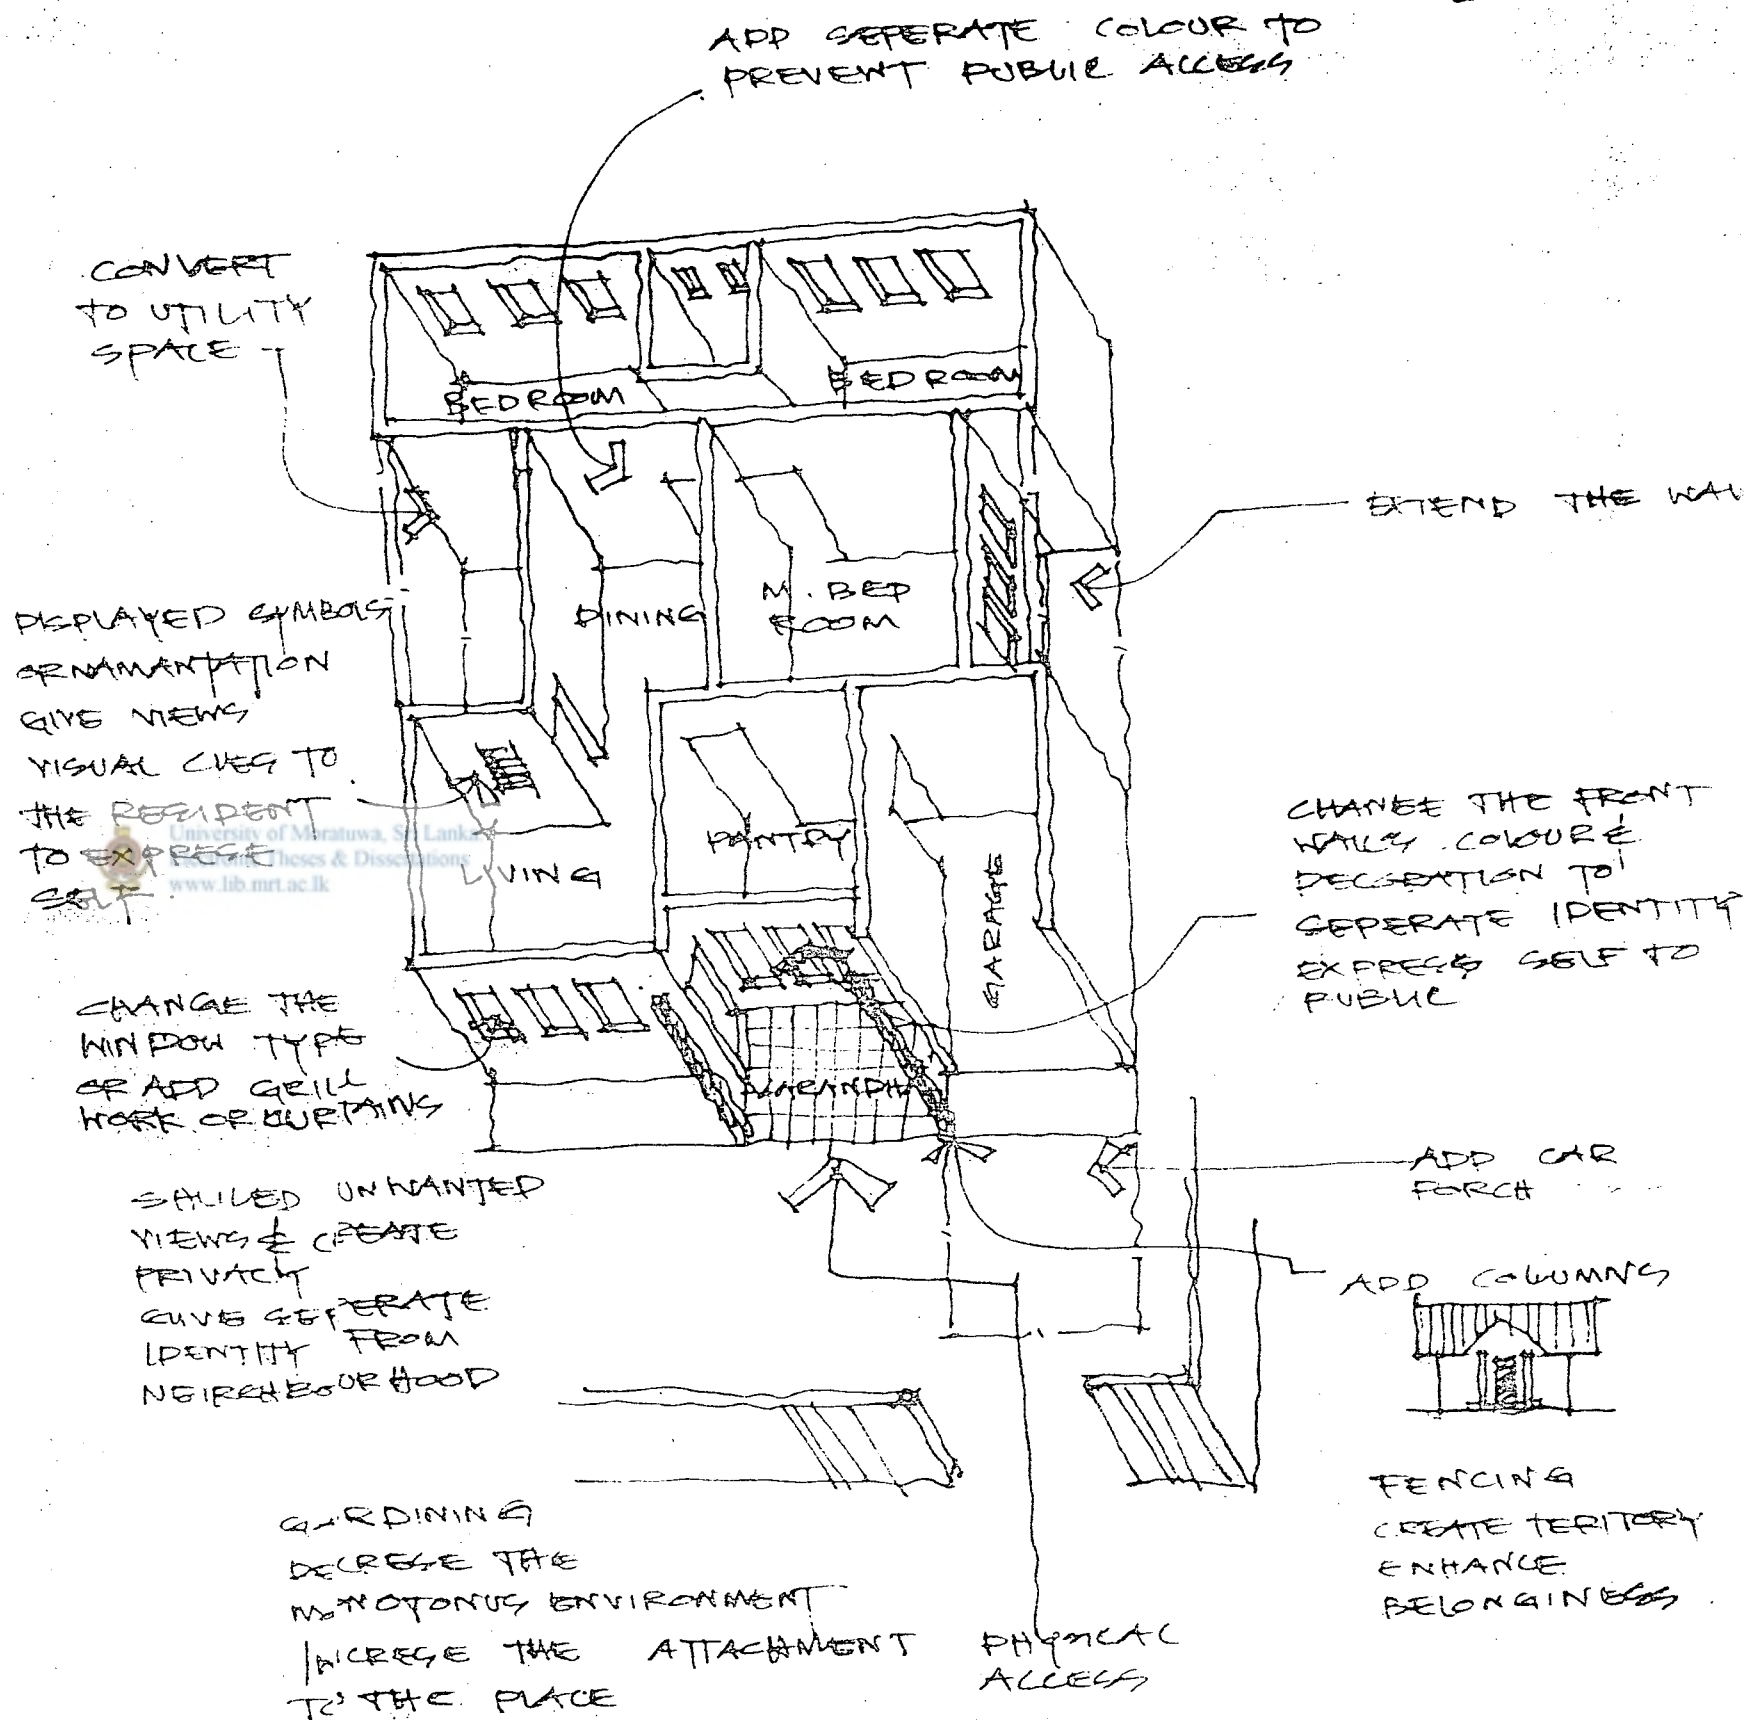 ADD SEPERATE COLOUR TO
PREVENT PUBLIC ACCESS
CONVERT
TO UTILITY
SPACE
BEDROOM
BEDROOM
EXTEND THE WAL
DINING
M. BED
ROOM
DISPLAYED SYMBOLS
ORNAMANTATION
GIVE VIEWS
VISUAL CUES TO
THE RESIDENT
TO EXPRESE
SELF
University of Moratuwa, Sri Lanka
Electronic Theses & Dissertations
www.lib.mrt.ac.lk
LIVING
PANTRY
GARAGE
VARANDHA
CHANGE THE FRONT
WALLS COLOUR &
DECORATION TO
SEPERATE IDENTITY
EXPRESS SELF TO
PUBLIC
CHANGE THE
WINDOW TYPE
OR ADD GRILL
WORK OR CURTAINS
UNWANTED
VIEWS & CREATE
PRIVACY
GIVE SEPERATE
IDENTITY FROM
NEIRGHBOURHOOD
ADD CAR
PORCH
ADD COLUMNS
FENCING
CREATE TERITORY
ENHANCE
BELONGINESS
GARDINING
DECRESE THE
MONOTONUS ENVIRONMENT
INCRESE THE ATTACHMENT
TO THE PLACE
PHYSICAL
ACCESS